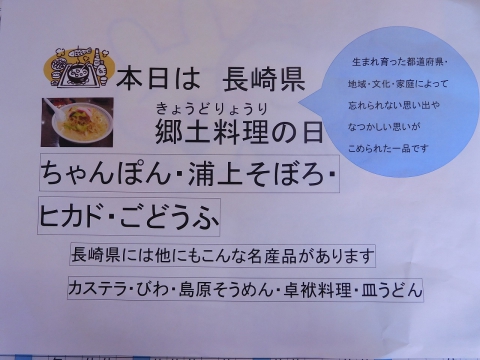 本日は 長崎県
きょうどりょうり
郷土料理の日
生まれ育った都道府県・
地域・文化・家庭によって
忘れられない思い出や
なつかしい思いが
こめられた一品です
ちゃんぽん・浦上そぼろ・
ヒカド・ごどうふ
長崎県には他にもこんな名産品があります
カステラ・びわ・島原そうめん・卓袱料理・皿うどん